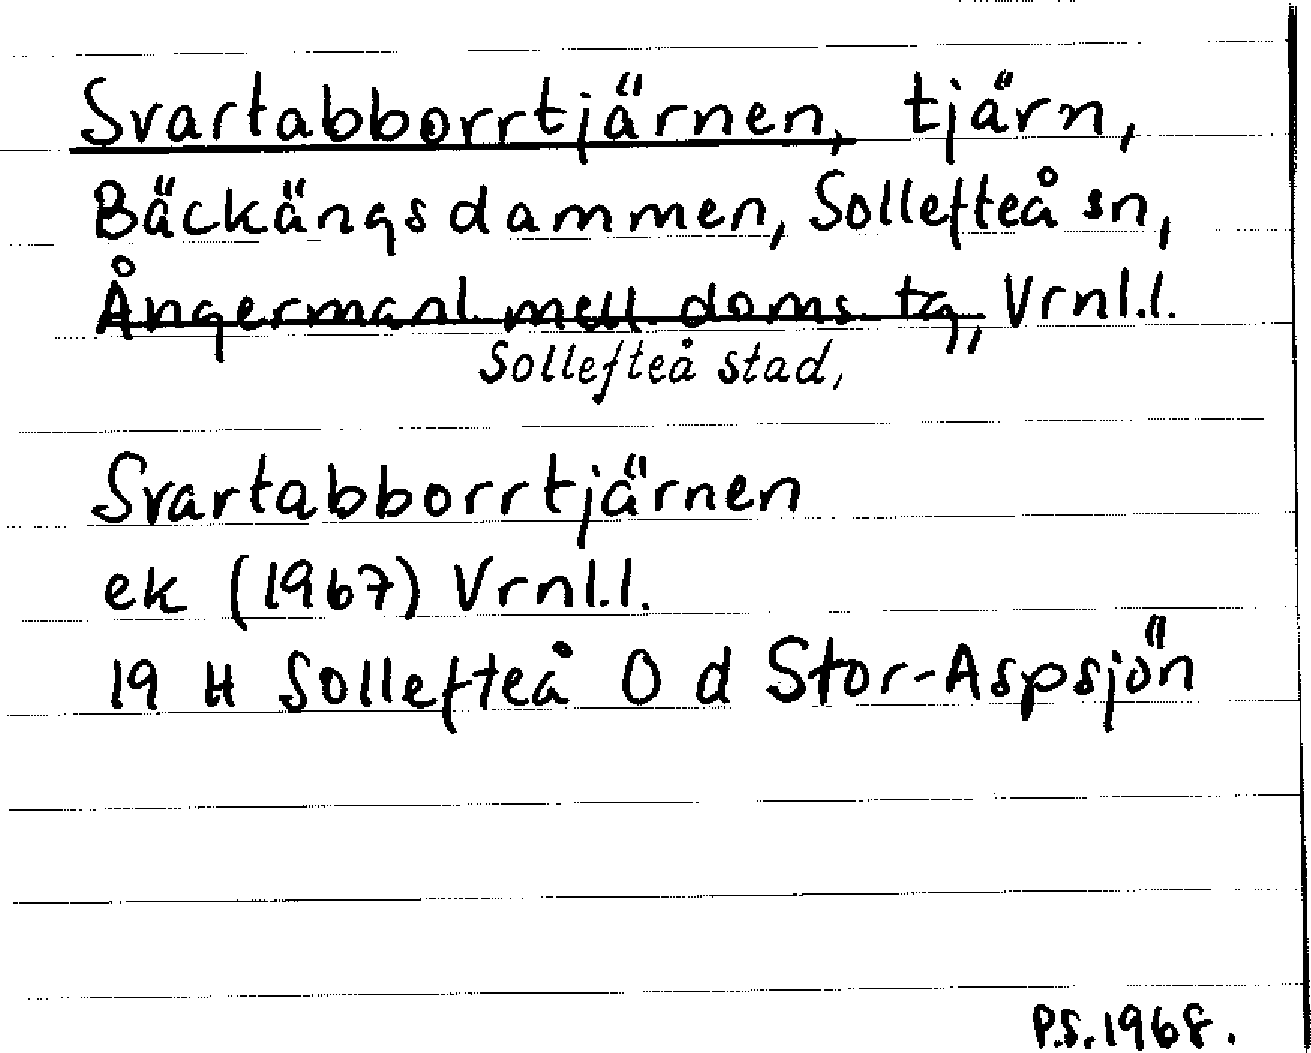 Svartabborrtjärnen, tjärn,
Bäckängsdammen, Sollefteå sn,
Ångermanl. mell. doms. tg, Vrnl.l.
Sollefteå stad,
Svartabborrtjärnen
ek (1967) Vrnl.l.
19 H Sollefteå O d Stor-Aspsjön
P.S. 1968.